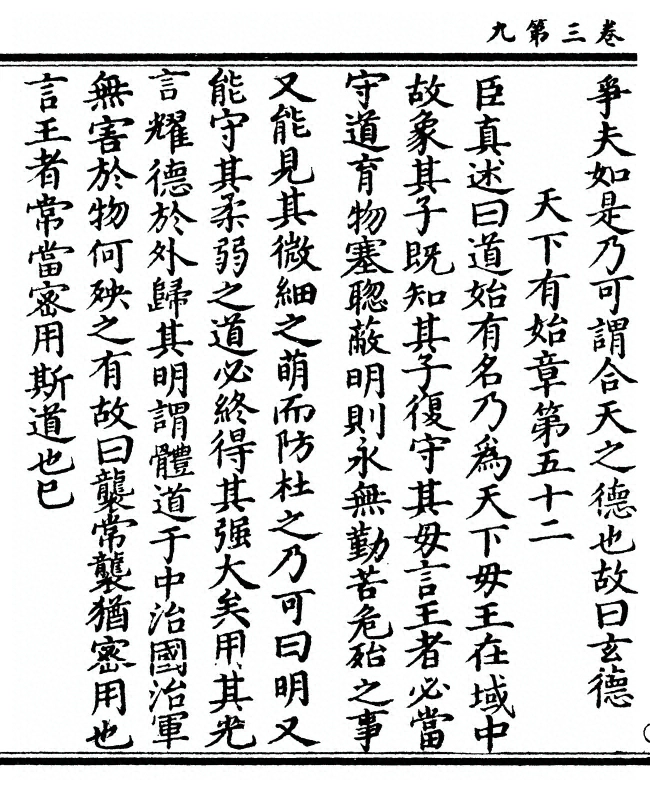 卷三第九
爭夫如是乃可謂合天之德也故曰玄德
天下有始章第五十二
臣真述曰道始有名乃為天下毋王在域中
故象其子既知其子復守其毋言王者必當
守道育物塞聦蔽明則永無勤苦危殆之事
又能見其微細之萌而防杜之乃可曰明又
能守其柔弱之道必終得其强大矣用其光
言耀德於外歸其明謂體道于中治國治軍
無害於物何殃之有故曰襲常襲猶密用也
言王者常當密用斯道也已